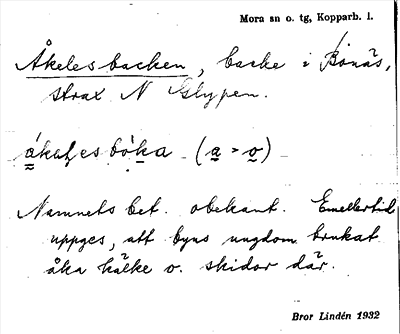 Mora sn o. tg, Kopparb. l.
Åkelesbacken, backe i Bonäs,
strax N Glypen.
ákaḷesbòka (a > o)
Namnets bet. obekant. Emellertid
uppges, att byns ungdom brukat
åka kälke o. skidor där.
Bror Lindén 1932